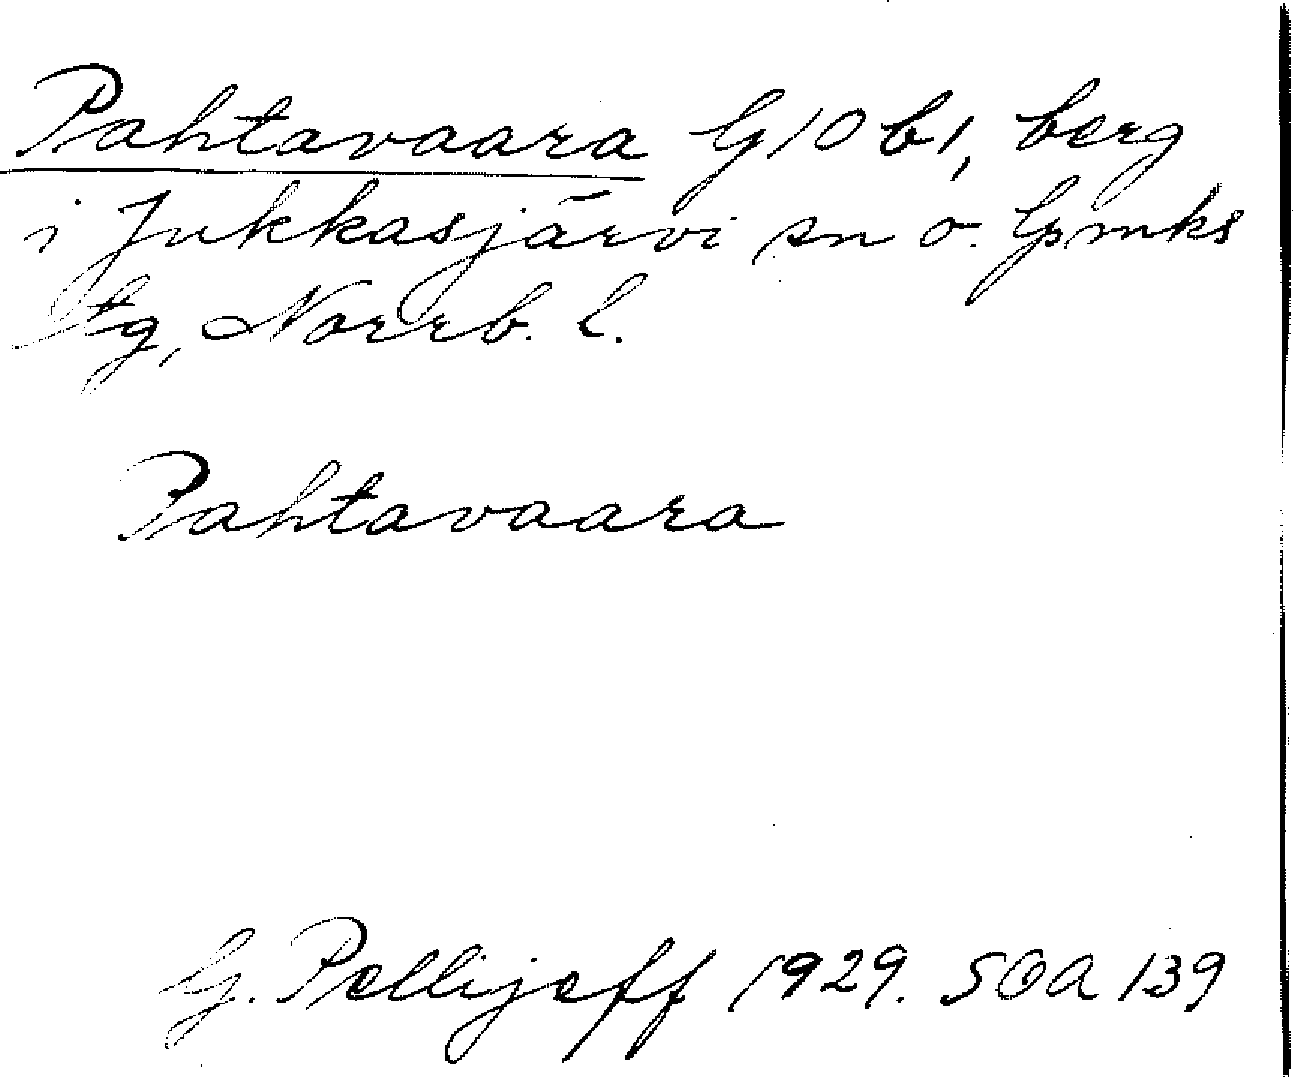 Pahtavaara G10b1, berg
i Jukkasjärvi sn o. lpmks
tg, Norrb. l.
Pahtavaara
G. Pellijeff 1929. SOA 139